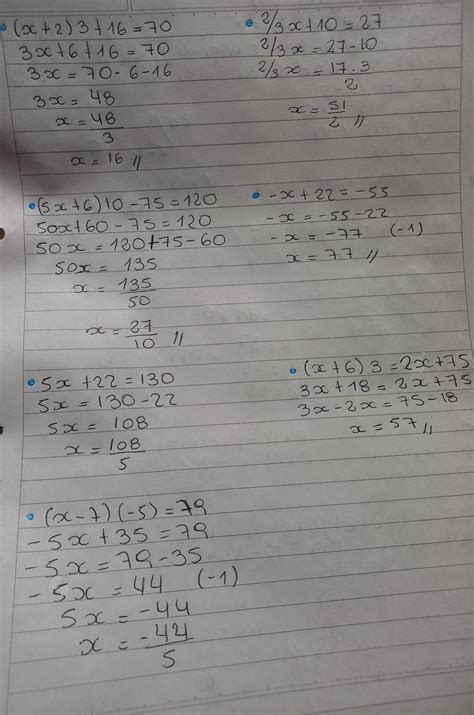 (x+2)3+16=70
3x+6+16=70
3x=70-6-16
3x=48
x=48/3
x=16//
2/3x+10=27
2/3x=27-10
2/3x=17.3/2
x=51/2//
(5x+6)10-75=120
50x+60-75=120
50x=120+75-60
50x=135
x=135/50
x=27/10//
-x+22=-55
-x=-55-22
-x=-77 (-1)
x=77//
5x+22=130
5x=130-22
5x=108
x=108/5
(x+6)3=2x+75
3x+18=2x+75
3x-2x=75-18
x=57//
(x-7)(-5)=79
-5x+35=79
-5x=79-35
-5x=44 (-1)
5x=-44
x=-44/5